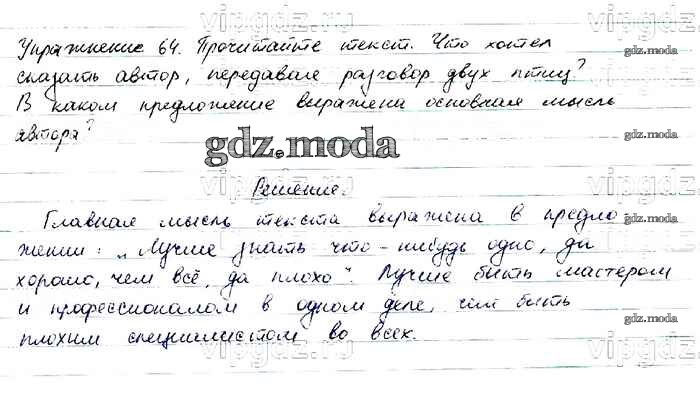 vipgdz.ru
vipgdz
Упражнение 64. Прочитайте текст. Что хотел
gdz.moda
сказать автор, передавая разговор двух птиц?
В каком предложение выражена основная мысль
автора?
gdz.moda
gdz.moda
vipgdz.ru
vipgdz
Решение.
Главная мысль текста выражена в предло-
gdz.moda
жении: „Лучше знать что-нибудь одно, да
хорошо, чем всё, да плохо". Лучше быть мастером
gdz.moda
и профессионалом в одном деле, чем быть
плохим специалистом во всех.
gdz.moda
vipgdz.ru
vipgdz